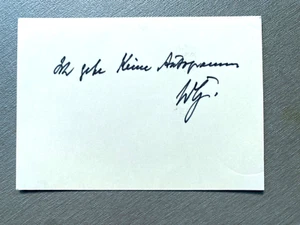 Ich gebe Keine Autogramme